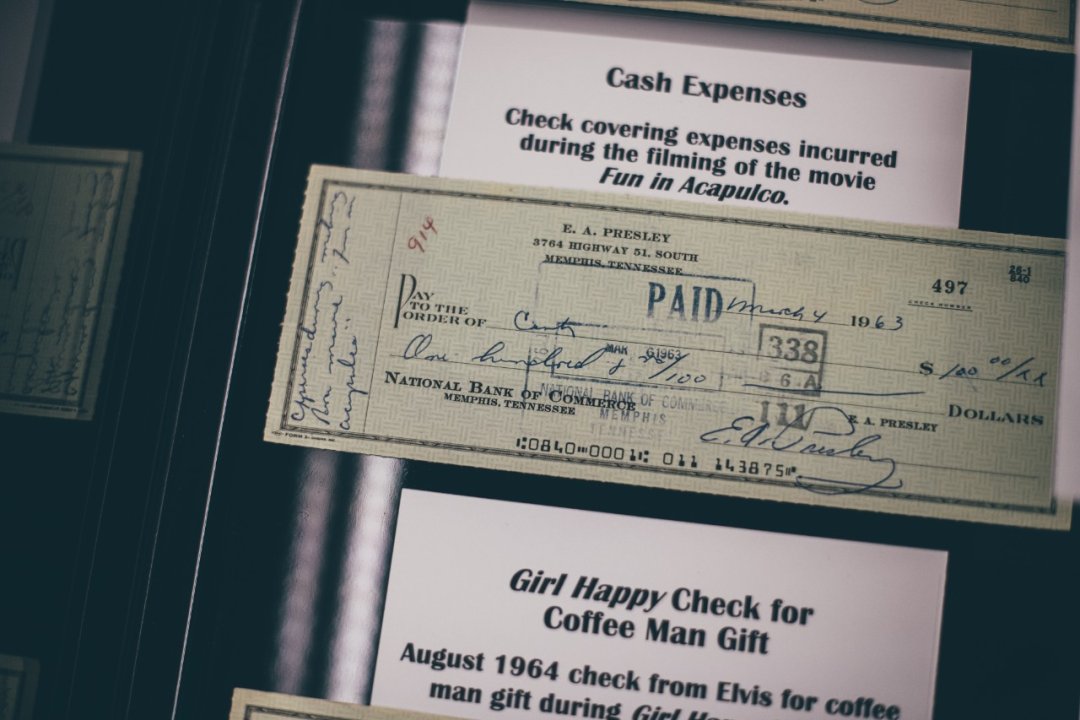 Cash Expenses
Check covering expenses incurred
during the filming of the movie
Fun in Acapulco.
914
E. A. PRESLEY
3764 HIGHWAY 51, SOUTH
MEMPHIS, TENNESSEE
497
CHECK NUMBER
26-1
840
PAID
March 4 1963
PAY
TO THE
ORDER OF
Cash
MAR 6 1963
338
6 A
111
$ 100 00/xx
One hundred & 00/100
DOLLARS
NATIONAL BANK OF COMMERCE
MEMPHIS, TENNESSEE
NATIONAL BANK OF COMMERCE
MEMPHIS
TENNESSEE
E. A. PRESLEY
E A Presley
⑆0840⑉0001⑆ 011 143875⑈
expenses during making
movie "Fun in
Acapulco"
Girl Happy Check for
Coffee Man Gift
August 1964 check from Elvis for coffee
man gift during Girl